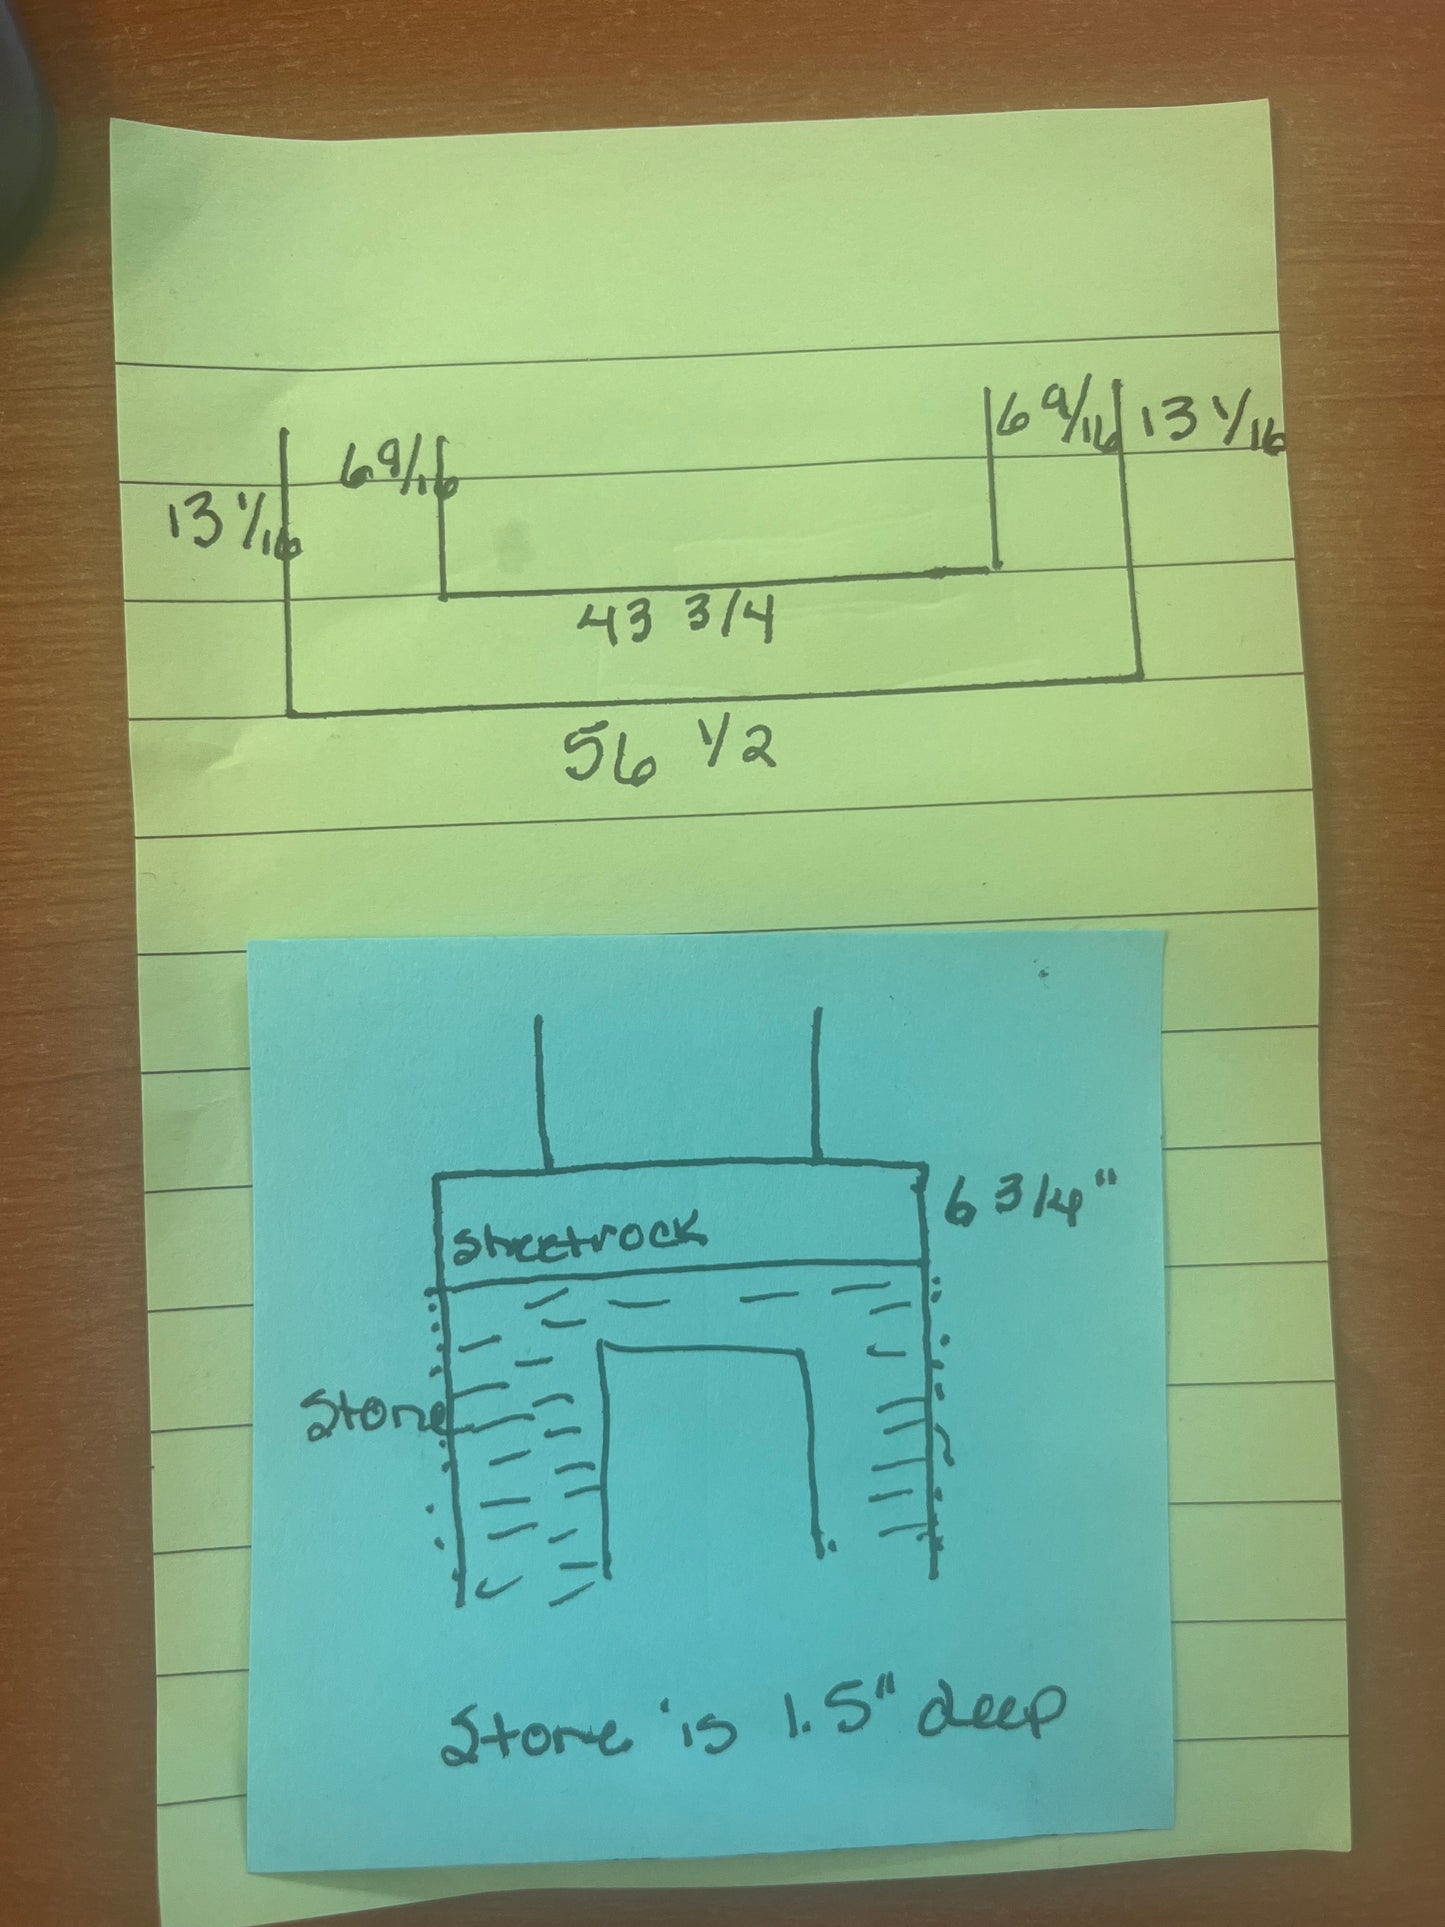 6 9/16
13 1/16
6 9/16
13 1/16
43 3/4
56 1/2
6 3/4"
sheetrock
Stone
Stone is 1.5" deep